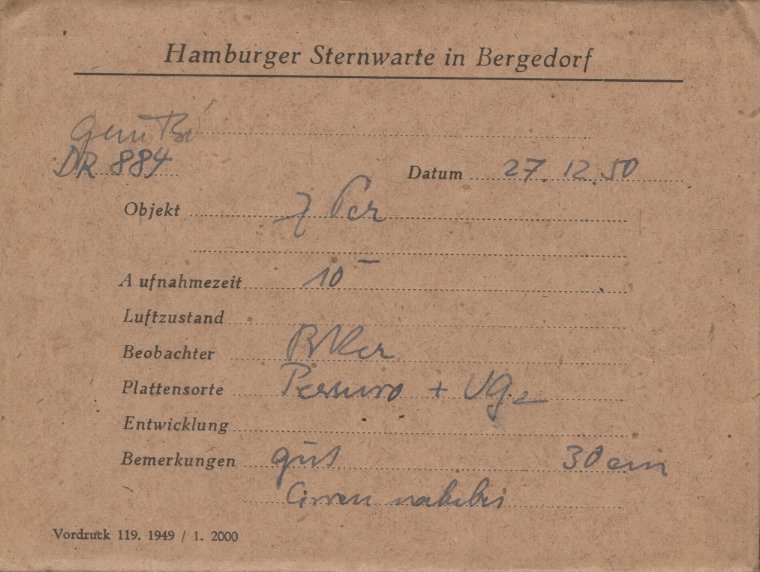 Hamburger Sternwarte in Bergedorf
DR 884
Datum 27. 12. 50
Objekt Per
Aufnahmezeit 10
Luftzustand
Beobachter
Plattensorte + UG2
Entwicklung
Bemerkungen gut 30 cm
Cirren nahebei
Vordruck 119. 1949 / 1. 2000